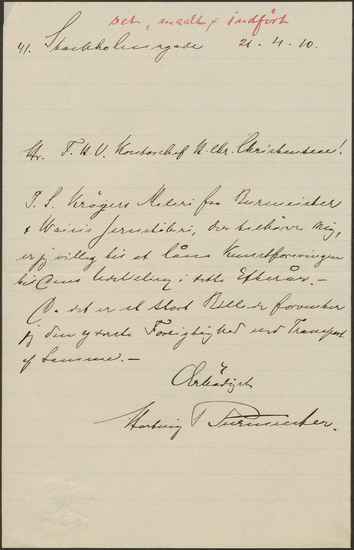 Set, maalt & indført
41. Stockholmsgade 21-4-10.
Hr. F. H. V. Kontorchef W. Chr. Christensen!
P. S. Krøyers Maleri fra Burmeister
& Wains Jernstøberi, der tilhører mig,
er jeg villig til at låne Kunstforeningen
til Udstilling i dette Efterår.-
Da det er et stort Billede forventer
jeg den yderste Forsigtighed ved Transport
af Samme.-
Ærbødigst
Burmeister.